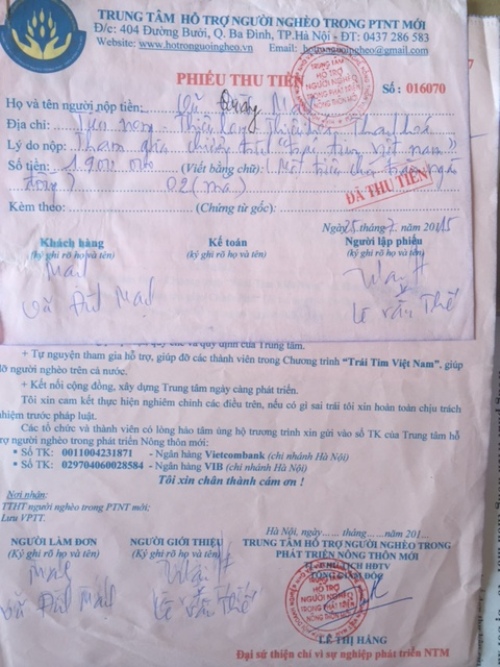 TRUNG TÂM HỖ TRỢ NGƯỜI NGHÈO TRONG PTNT MỚI
Đ/c: 404 Đường Bưởi, Q. Ba Đình, TP.Hà Nội - ĐT: 0437 286 583
Website: www.hotronguoingheo.vn Email: hotronguoingheo@gmail.com
PHIẾU THU TIỀN
Số : 016070
Họ và tên người nộp tiền: Vũ
Địa chỉ: Thanh hoá
Lý do nộp: Tham gia chương trình "Trái tim việt nam"
Số tiền: 1.900 000 (Viết bằng chữ): (Một triệu chín trăm ngàn
đồng)
ĐÃ THU TIỀN
Kèm theo: (Chứng từ gốc):
Ngày 25 tháng 7 năm 2015
Khách hàng Kế toán Người lập phiếu
(ký ghi rõ họ và tên) (ký ghi rõ họ và tên) (ký ghi rõ họ và tên)
Vũ Đất Lê Văn Thế
quy định của Trung tâm.
+ Tự nguyện tham gia hỗ trợ, giúp đỡ các thành viên trong Chương trình "Trái Tim Việt Nam", giúp
đỡ người nghèo trên cả nước.
+ Kết nối cộng đồng, xây dựng Trung tâm ngày càng phát triển.
Tôi xin cam kết thực hiện nghiêm chỉnh các điều trên, nếu có gì sai trái tôi xin hoàn toàn chịu trách
nhiệm trước pháp luật.
Các tổ chức và thành viên có lòng hảo tâm ủng hộ trương trình xin gửi vào số TK của Trung tâm hỗ
trợ người nghèo trong phát triển Nông thôn mới:
• Số TK: 0011004231871 - Ngân hàng Vietcombank (chi nhánh Hà Nội)
• Số TK: 029704060028584 - Ngân hàng VIB (chi nhánh Hà Nội)
Tôi xin chân thành cảm ơn !
Nơi nhận:
TTHT người nghèo trong PTNT mới:
Lưu VPTT.
Hà Nội, ngày...... tháng ......năm 201...
NGƯỜI LÀM ĐƠN NGƯỜI GIỚI THIỆU TRUNG TÂM HỖ TRỢ NGƯỜI NGHÈO TRONG
(Ký ghi rõ họ và tên) (Ký ghi rõ họ và tên) PHÁT TRIỂN NÔNG THÔN MỚI
CHỦ TỊCH HĐTV
TỔNG GIÁM ĐỐC
Vũ Đất Lê Văn Thế
LÊ THỊ HẰNG
Đại sứ thiện chí vì sự nghiệp phát triển NTM